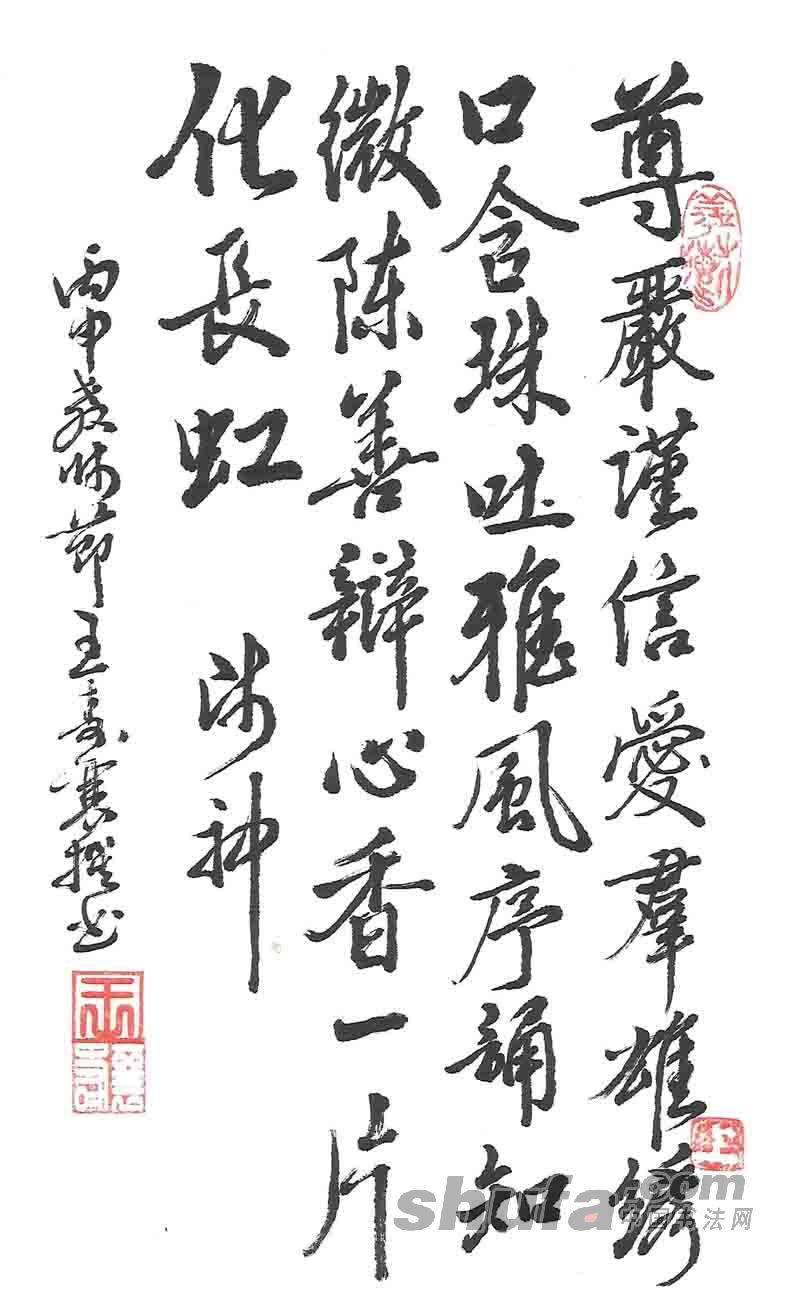 尊嚴謹信愛羣雄鏽
口含珠吐雅風序誦知
微陈善辯心香一片
化長虹 师神
丙申教师節王壽賓撰书
shufa.com
中国书法网